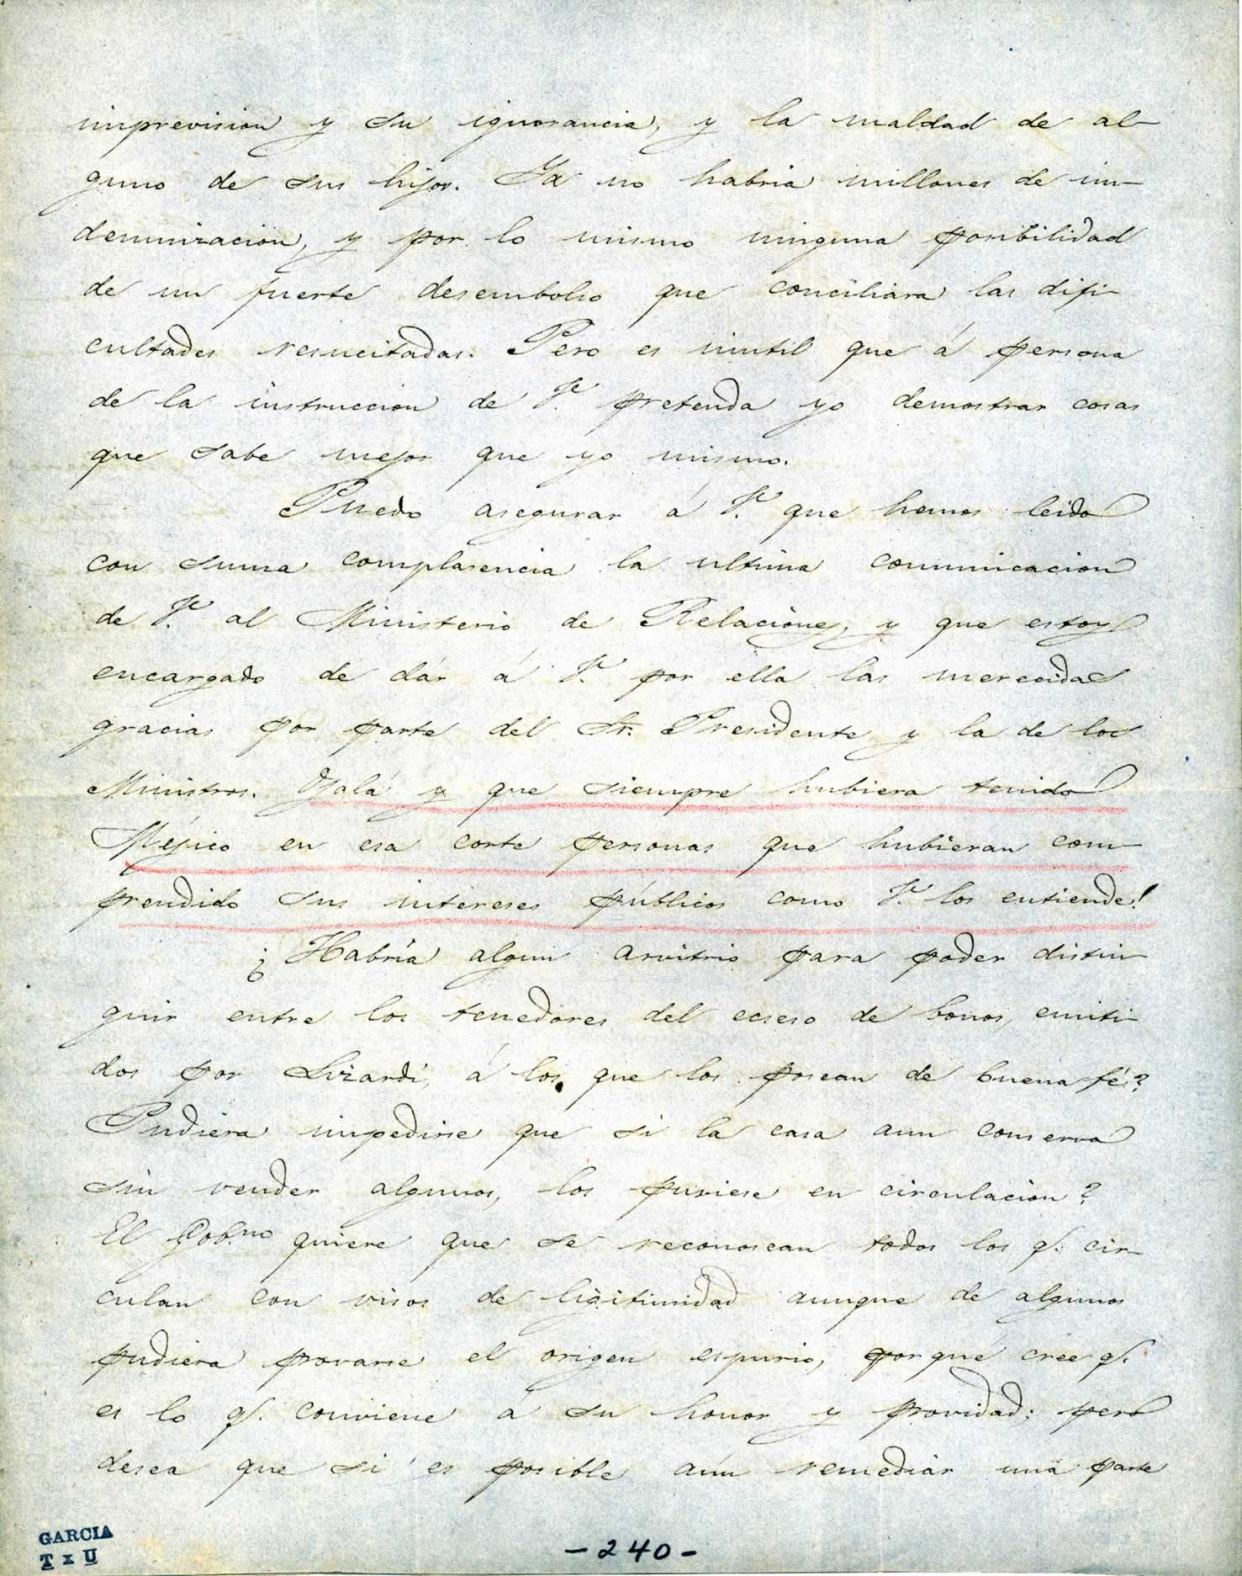 imprevision y su ignorancia, y la maldad de al-
guno de sus hijos. Ya no habria millones de in-
demnizacion, y por lo mismo ninguna posibilidad
de un fuerte desembolso que conciliara las difi-
cultades resucitadas. Pero es inutil que á persona
de la instruccion de V. pretenda yo demostrar cosas
que sabe mejor que yo mismo.
Puedo asegurar á V. que hemos leido
con suma complasencia la ultima comunicacion
de V. al Ministerio de Relaciones, y que estoy
encargado de dár á V. por ella las merecidas
gracias por parte del Sr. Presidente y la de los
Ministros. Ojalá y que siempre hubiera tenido
Méjico en esa corte personas que hubieran com-
prendido sus intereses públicos como V. los entiende!
¿Habría algun arvitrio para poder distin-
guir entre los tenedores del ecseso de bonos, emiti-
dos por Lizardi, á los que los posean de buena fé?
Pudiera impedirse que si la casa aun conserva
sin vender algunos, los pusiese en circulacion?
El Gobno quiere que se reconoscan todos los q. cir-
culan con visos de ligitimidad aunque de algunos
pudiera provarse el origen espurio, porqué cree q.
es lo q. conviene á su honor y providad: pero
desea que si es posible aún remediár una parte
GARCIA
T x U
-240-